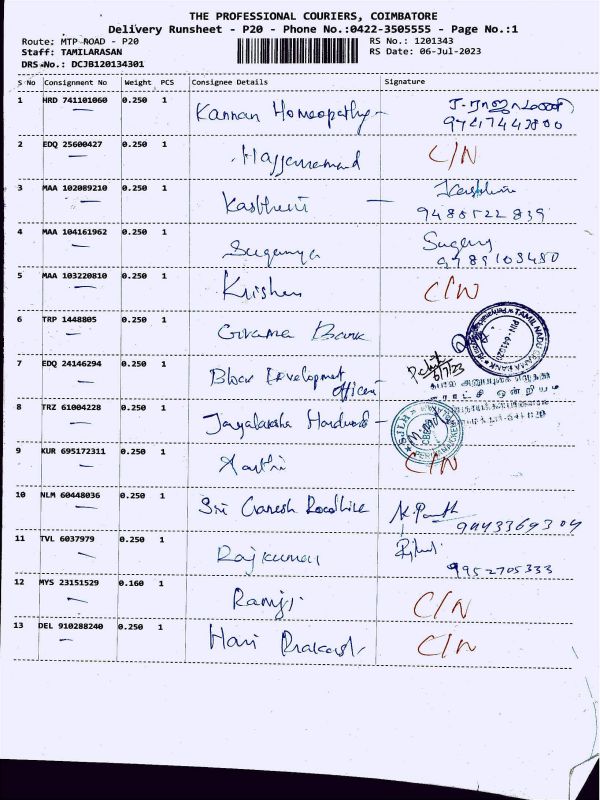 THE PROFESSIONAL COURIERS, COIMBATORE
Delivery Runsheet - P20 - Phone No.:0422-3505555 - Page No.:1
Route: MTP ROAD - P20 RS No.: 1201343
Staff: TAMILARASAN RS Date: 06-Jul-2023
DRS No.: DCJB120134301
S No Consignment No Weight PCS Consignee Details Signature
1 HRD 741101060 0.250 1 Kannan Homeopathy
2 EDQ 25600427 0.250 1 C/N
3 MAA 102089210 0.250 1 Kasthuri
9486522839
4 MAA 104161962 0.250 1 Suganya
9789103480
5 MAA 103220810 0.250 1 Krishna C/N
6 TRP 1448805 0.250 1 Grama Bank
TAMIL NADU GRAMA BANK
7 EDQ 24146294 0.250 1 Block Development
Officer 6/7/23
8 TRZ 61004228 0.250 1 Jayalaksha Hardware
SJLH
9 KUR 695172311 0.250 1 Aarthi C/N
10 NLM 60448036 0.250 1 Sri Ganesh Roadlice
9443369304
11 TVL 6037979 0.250 1 Rajkumar
9952705333
12 MYS 23151529 0.160 1 Ramji C/N
13 DEL 910288240 0.250 1 Hari Prakash C/N